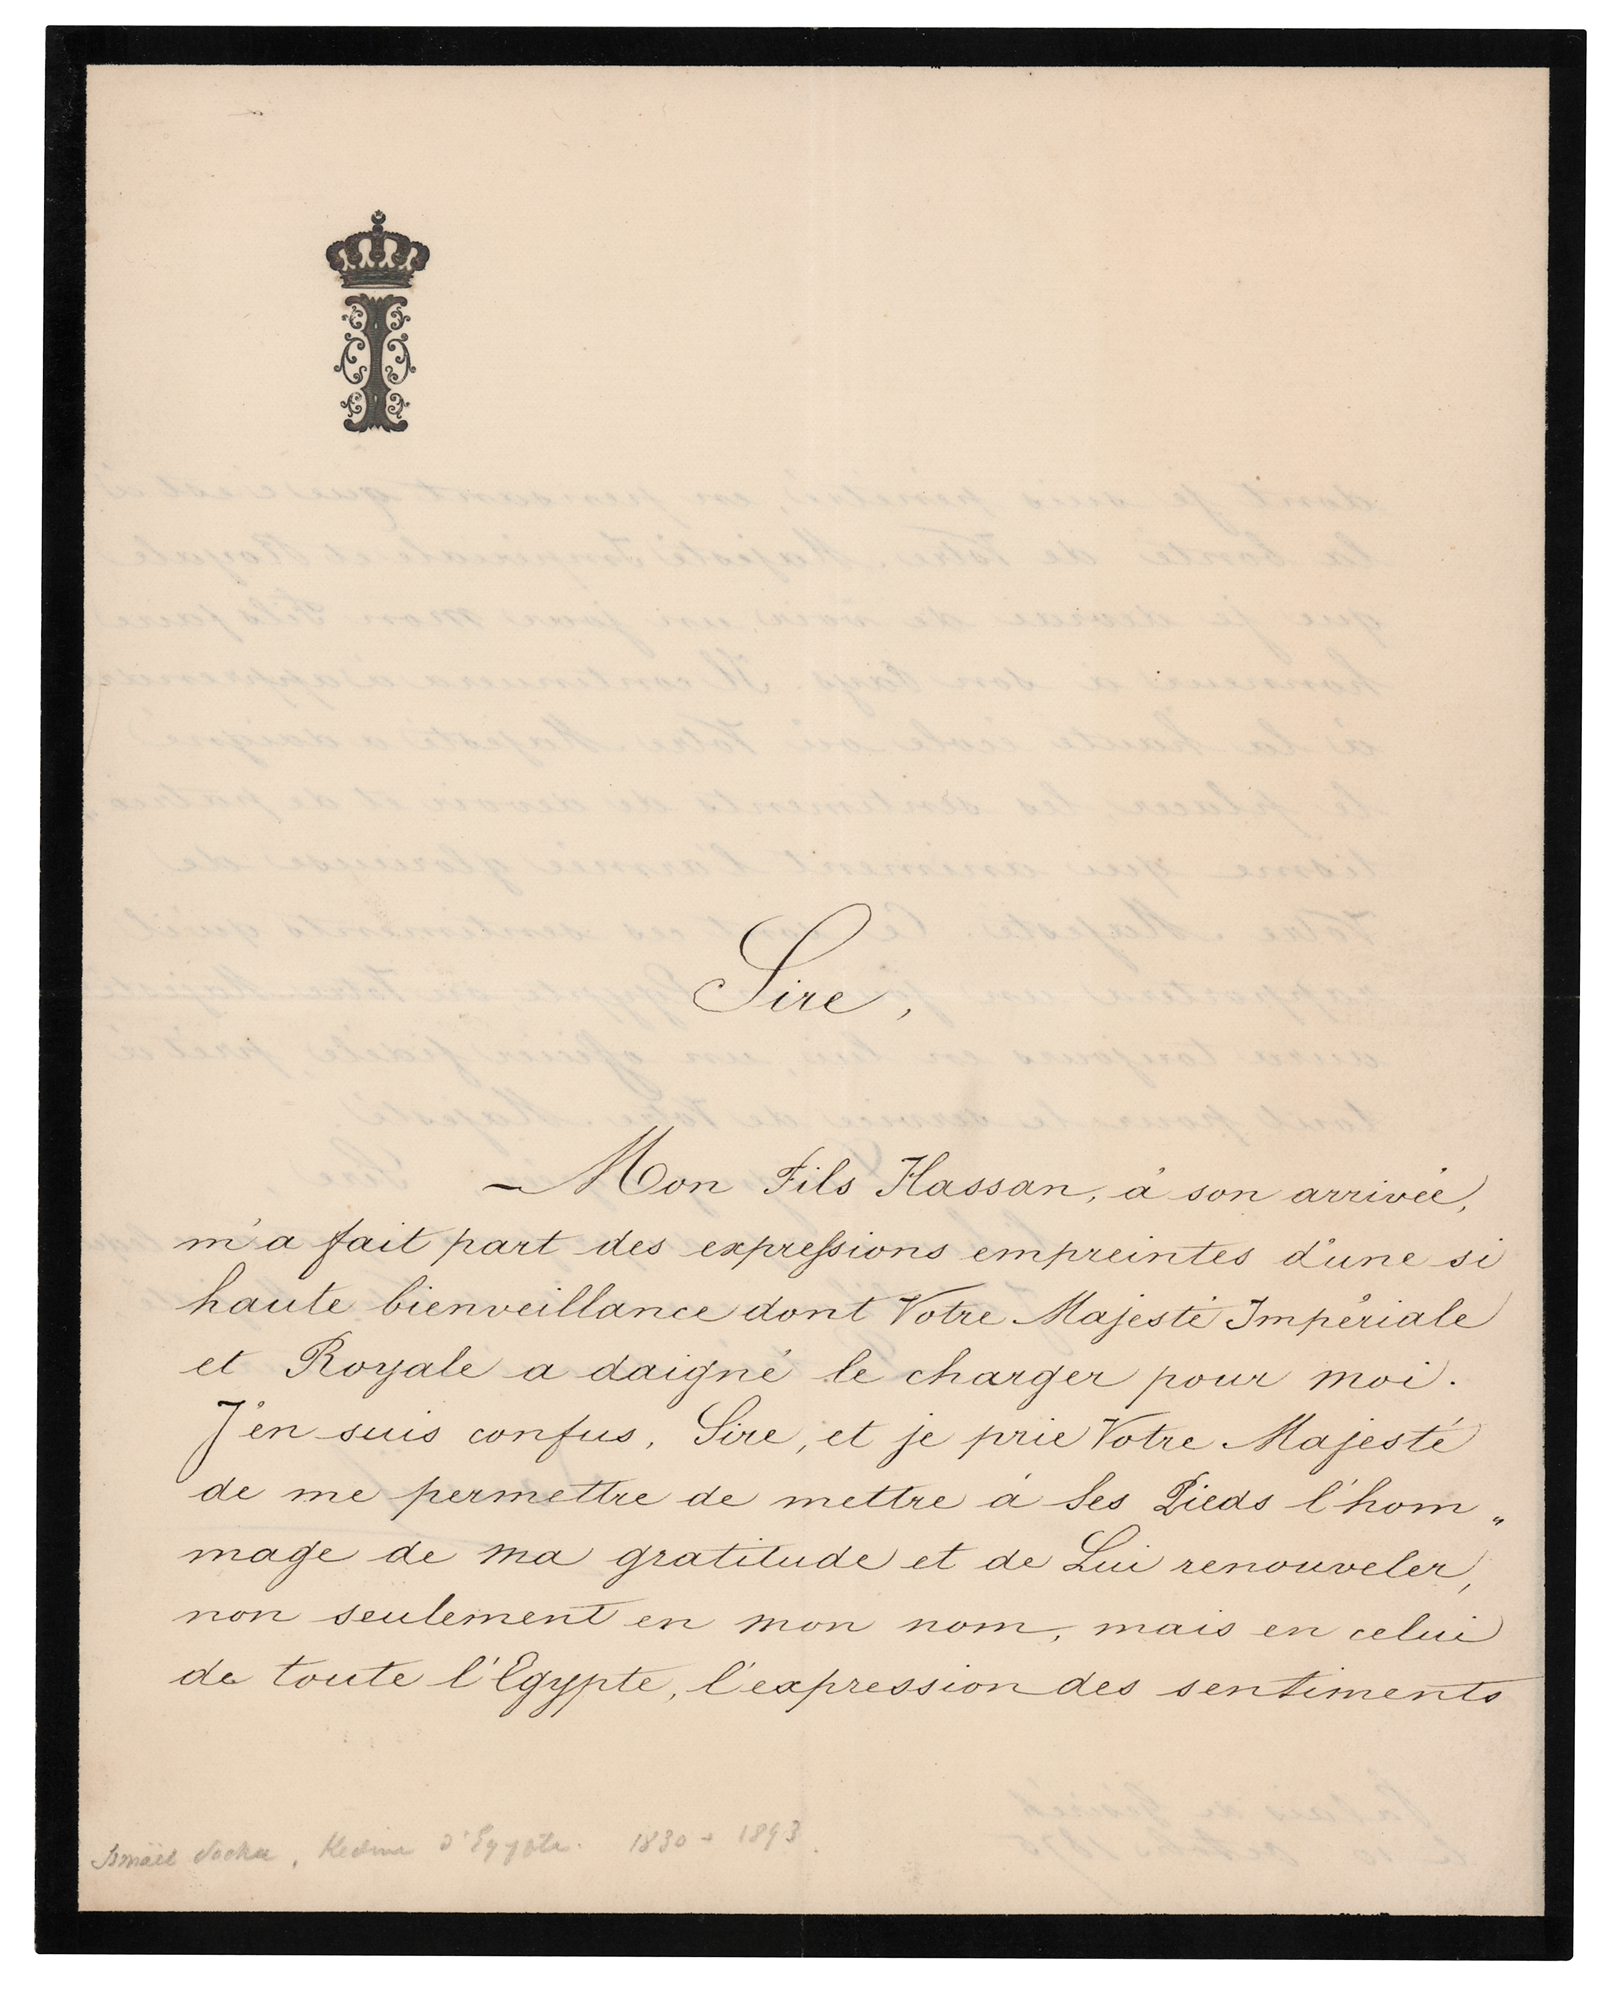 I
Sire,
Mon Fils Hassan, à son arrivée,
m'a fait part des expressions empreintes d'une si
haute bienveillance dont Votre Majesté Impériale
et Royale a daigné le charger pour moi.
J'en suis confus, Sire, et je prie Votre Majesté
de me permettre de mettre à Ses Pieds l'hom„
mage de ma gratitude et de Lui renouveler,
non seulement en mon nom, mais en celui
de toute l'Egypte, l'expression des sentiments
Ismäel Kedive d'Egypte. 1830 - 1893